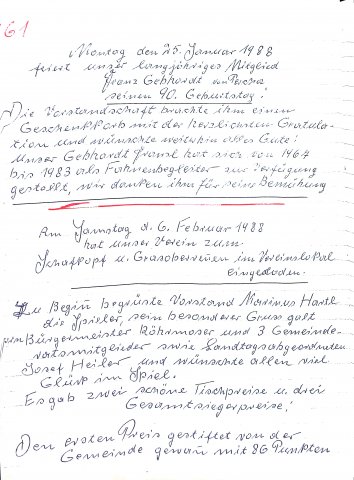 61
Montag den 25. Januar 1988
feiert unser langjähriges Mitglied
Franz Gebhardt von
seinen 90. Geburtstag!
Die Vorstandschaft brachte ihm einen
Geschenkkorb mit der herzlichsten Gratula-
tion und wünschte weiterhin alles Gute!
Unser Gebhardt Franzl hat sich von 1964
bis 1983 als Fahnenbegleiter zur Verfügung
gestellt, wir danken ihm für seine Bemühung
Am Samstag d. 6. Februar 1988
hat unser Verein zum
Schafkopf u. Grasoberrennen im Vereinslokal
eingeladen.
Zu Beginn begrüsste Vorstand Marinus Hartl
die Spieler, sein besonderer Gruss galt
Bürgermeister Röhrmoser und 3 Gemeinde-
ratsmitglieder sowie Landtagsabgeordneten
Josef Heiler und wünschte allen viel
Glück im Spiel.
Es gab zwei schöne Tischpreise u. drei
Gesamtsiegerpreise!
Den ersten Preis gestiftet von der
Gemeinde gewann mit 86 Punkten